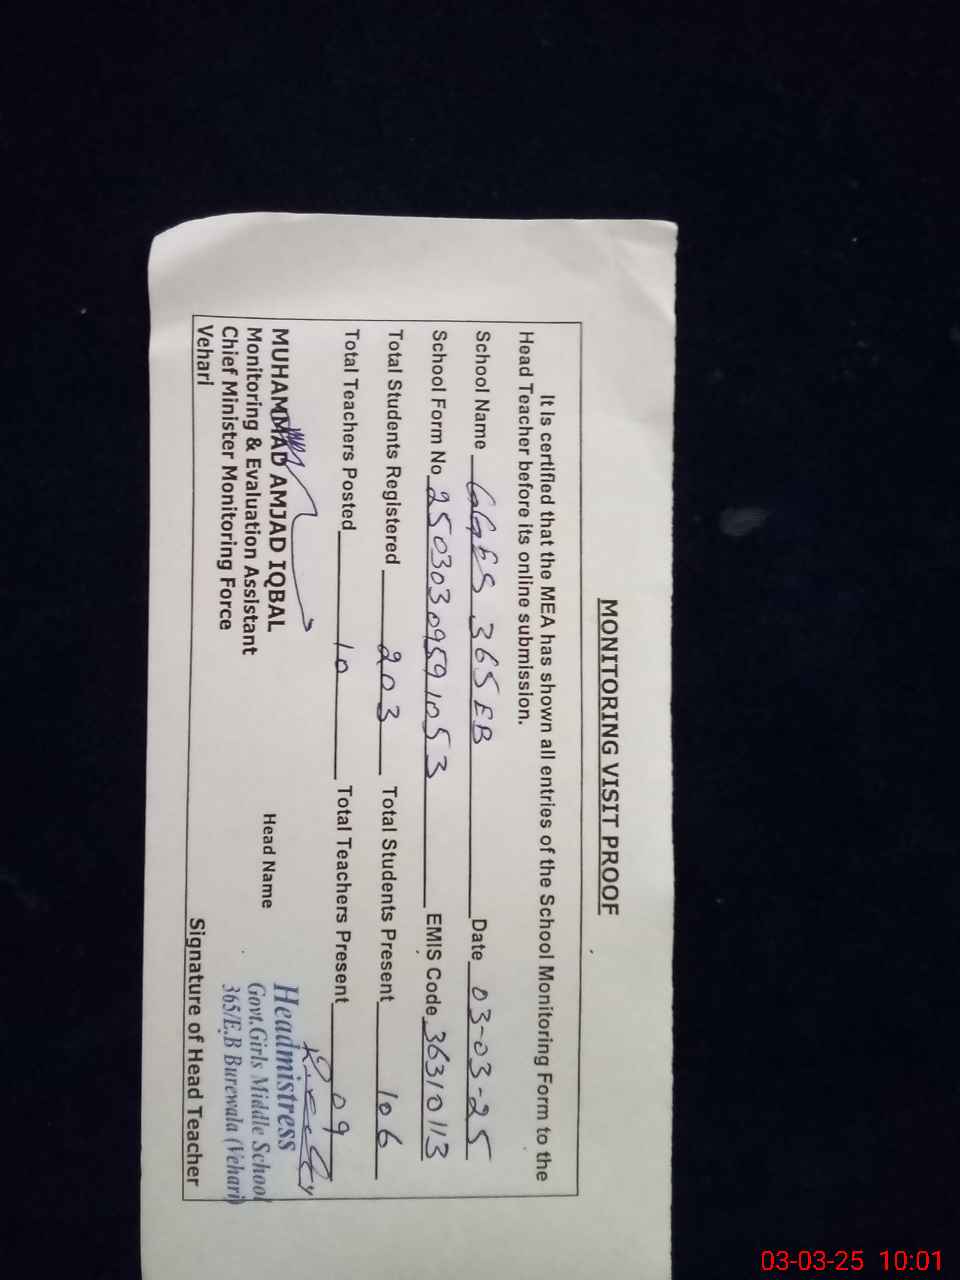 MONITORING VISIT PROOF
It Is certified that the MEA has shown all entries of the School Monitoring Form to the
Head Teacher before its online submission.
School Name GGES 365 EB Date 03-03-25
School Form No 25030309591053 EMIS Code 36310113
Total Students Registered 203 Total Students Present 106
Total Teachers Posted 10 Total Teachers Present 09
MUHAMMAD AMJAD IQBAL
Monitoring & Evaluation Assistant
Chief Minister Monitoring Force
Vehari
Head Name
Headmistress
Govt.Girls Middle School
365/E.B Burewala (Vehari)
Signature of Head Teacher
03-03-25 10:01